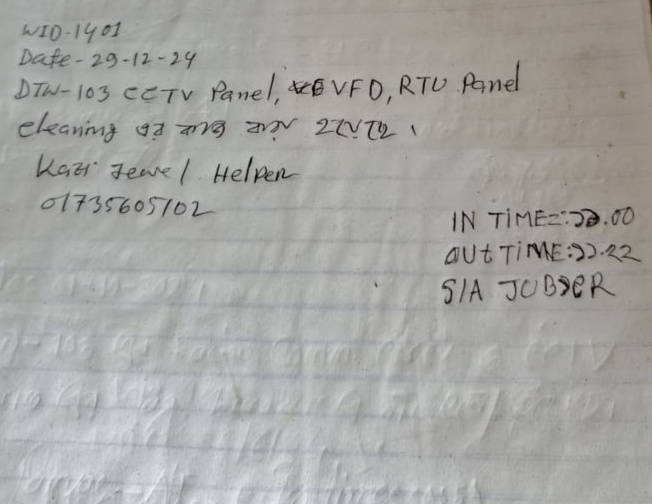 WID-1401
Date-29-12-24
DTW-103 CCTV Panel, VFD, RTU Panel
cleaning এর কাজ করা হয়েছে ।
Kazi Jewel Helper
01735605102
IN TIME=:১১.00
OUt TiME:১১.২২
S/A JUBAER